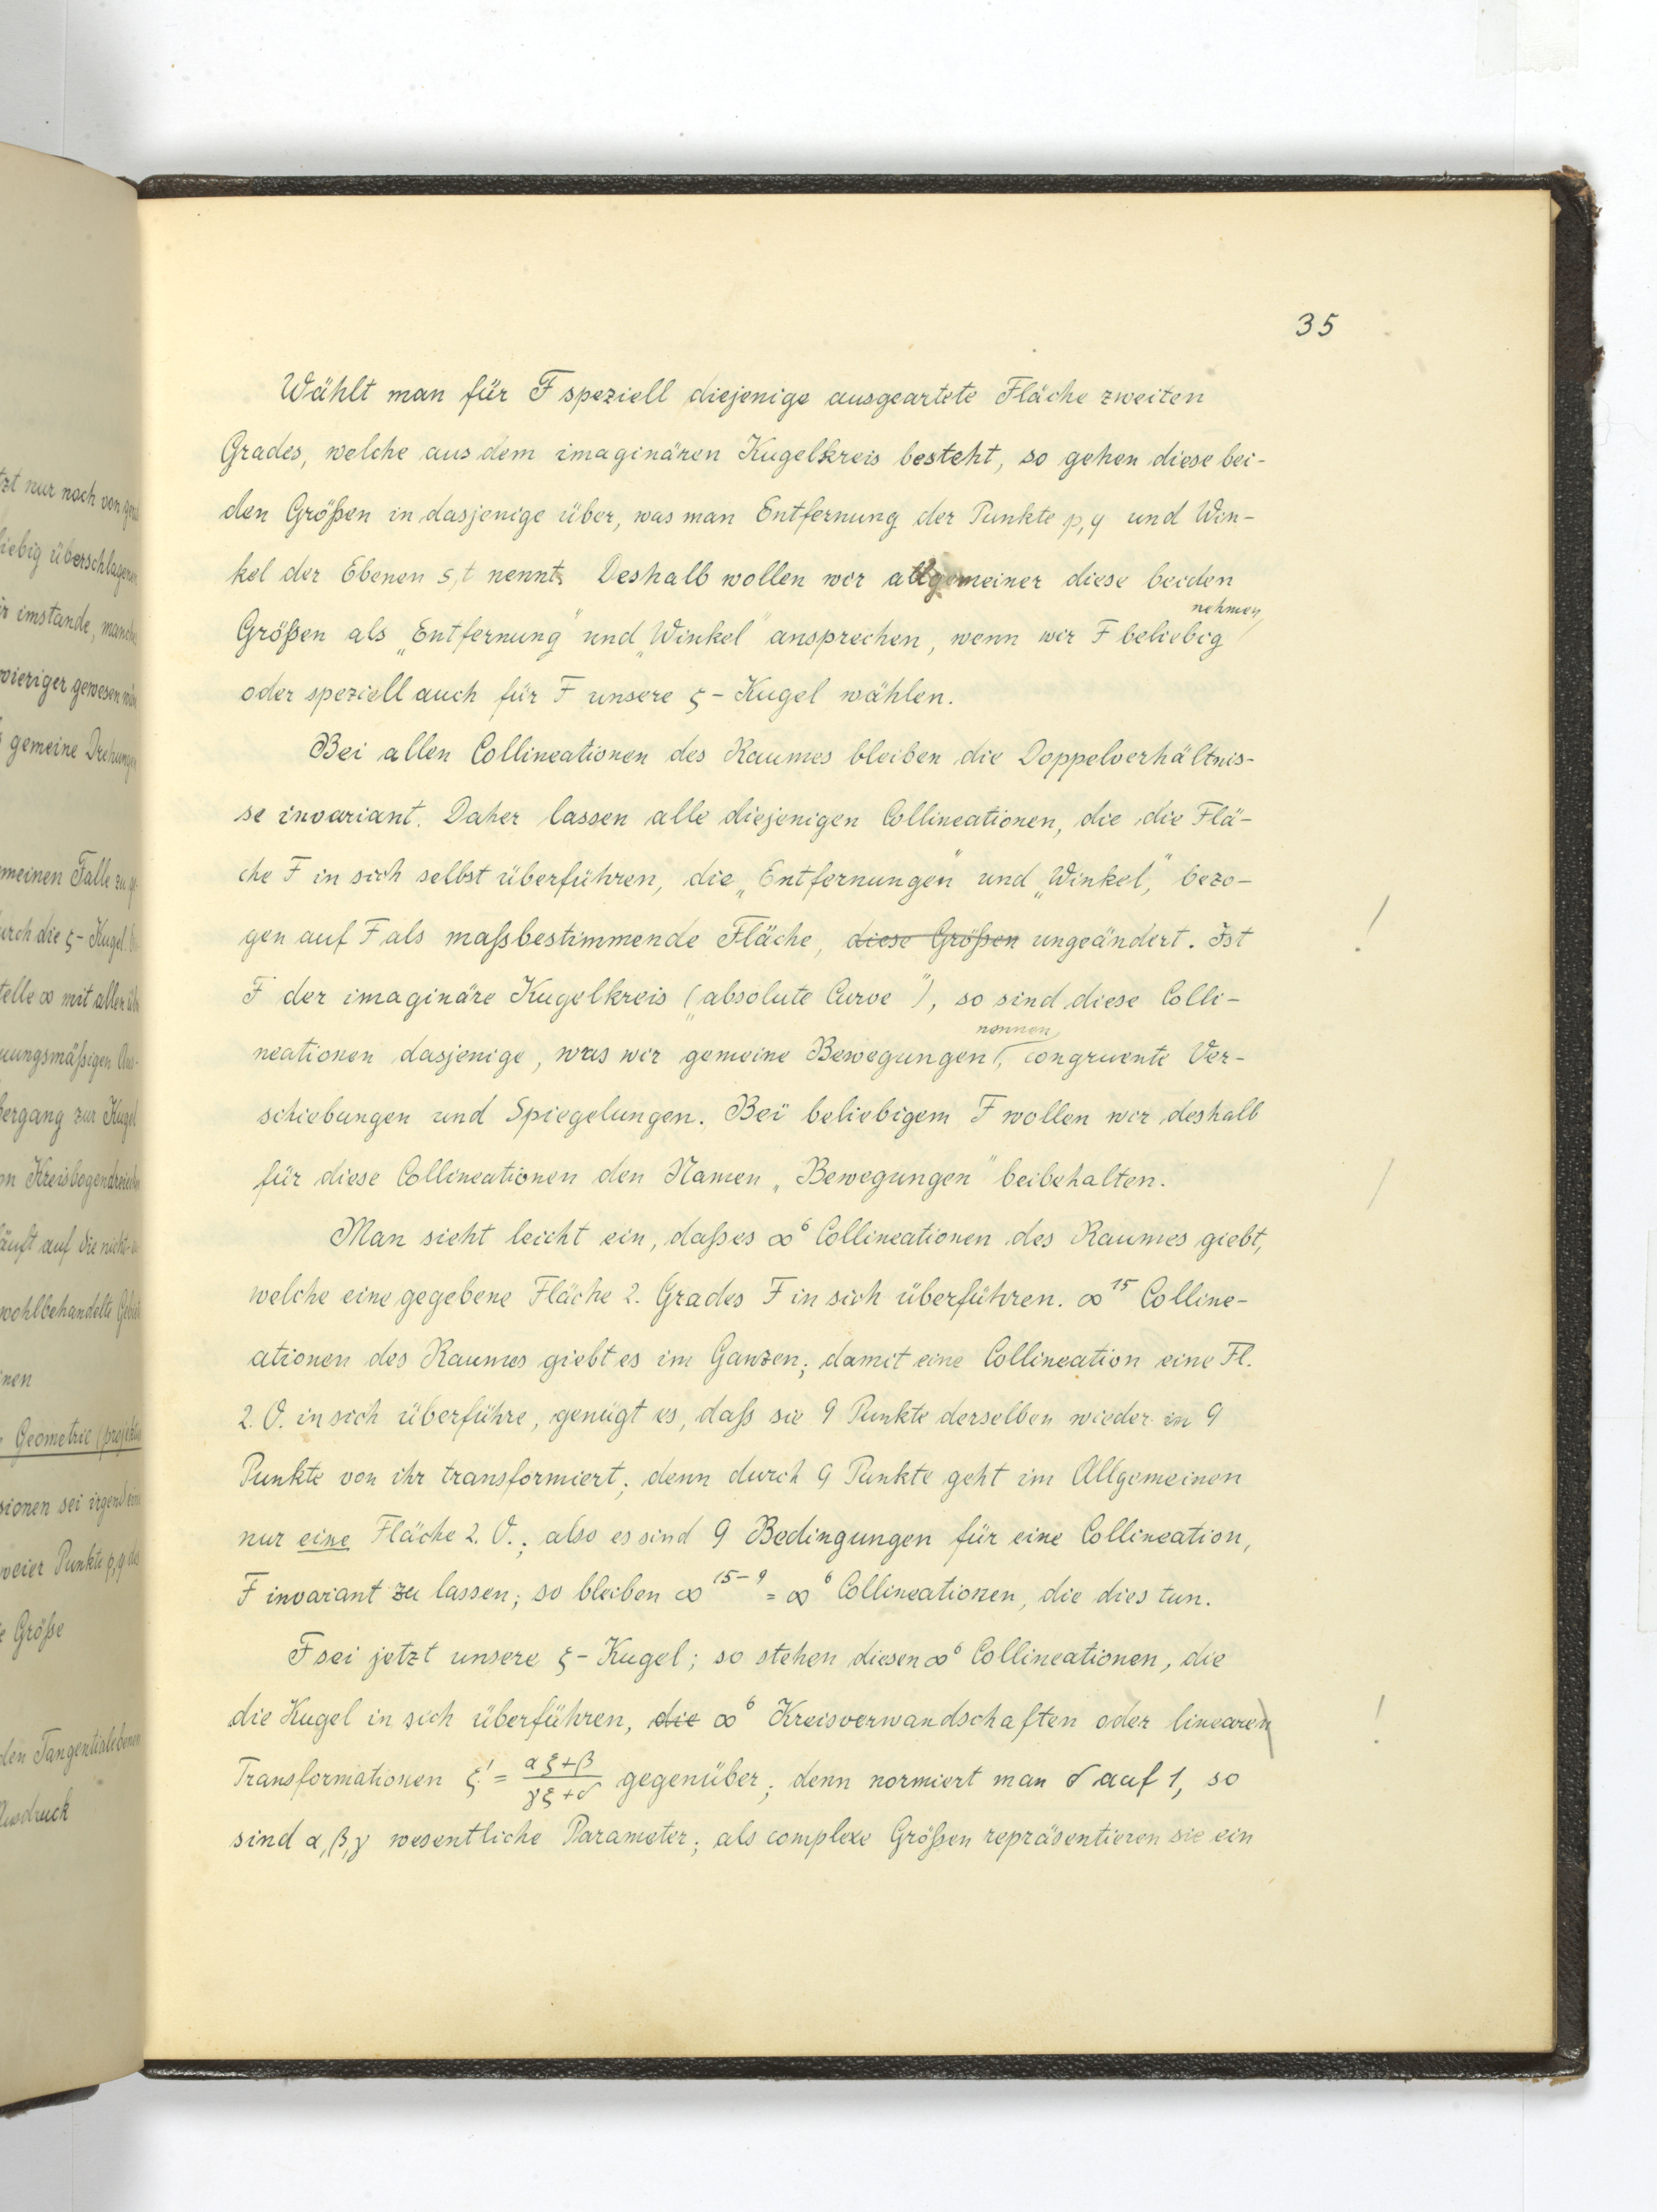 35
Wählt man für F speziell diejenige ausgeartete Fläche zweiten
Grades, welche aus dem imaginären Kugelkreis besteht, so gehen diese bei-
den Größen in dasjenige über, was man Entfernung der Punkte p, q und Win-
kel der Ebenen s, t nennt. Deshalb wollen wir allgemeiner diese beiden
nehmen,
Größen als „Entfernung" und „Winkel" ansprechen, wenn wir F beliebig
oder speziell auch für F unsere ζ-Kugel wählen.
Bei allen Collineationen des Raumes bleiben die Doppelverhältnis-
se invariant. Daher lassen alle diejenigen Collineationen, die die Flä-
che F in sich selbst überführen, die „Entfernungen" und „Winkel", bezo-
gen auf F als maßbestimmende Fläche, diese Größen ungeändert. Ist
F der imaginäre Kugelkreis („absolute Curve"), so sind diese Colli-
nennen
neationen dasjenige, was wir gemeine Bewegungen, congruente Ver-
schiebungen und Spiegelungen. Bei beliebigem F wollen wir deshalb
für diese Collineationen den Namen „Bewegungen" beibehalten.
Man sieht leicht ein, daß es ∞⁶ Collineationen des Raumes giebt,
welche eine gegebene Fläche 2. Grades F in sich überführen. ∞¹⁵ Colline-
ationen des Raumes giebt es im Ganzen; damit eine Collineation eine Fl.
2. O. in sich überführe, genügt es, daß sie 9 Punkte derselben wieder in 9
Punkte von ihr transformiert; denn durch 9 Punkte geht im Allgemeinen
nur eine Fläche 2. O.; also es sind 9 Bedingungen für eine Collineation,
F invariant zu lassen; so bleiben ∞¹⁵⁻⁹ = ∞⁶ Collineationen, die dies tun.
F sei jetzt unsere ζ-Kugel; so stehen diesen ∞⁶ Collineationen, die
die Kugel in sich überführen, die ∞⁶ Kreisverwandschaften oder linearen
Transformationen ξ' = (αξ+β)/(γξ+δ) gegenüber; denn normiert man δ auf 1, so
sind α, β, γ wesentliche Parameter; als complexe Größen repräsentieren sie ein